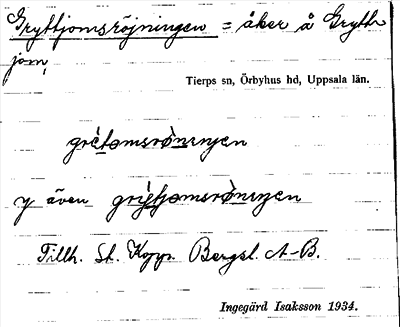 Gryttjomsröjningen = åker å Grytt-
jom,
Tierps sn, Örbyhus hd, Uppsala län.
grètomsrø̀nıŋen
y även grỳtjomsrø̀nıŋen
Tillh. St. Kopp. Bergsl. A-B.
Ingegärd Isaksson 1934.